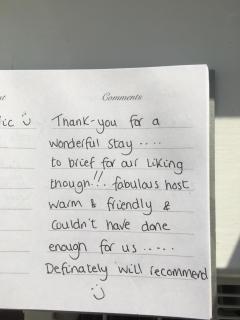 Comments
Thank-you for a
wonderful stay ....
to brief for our liking
though!!. fabulous host
warm & friendly &
couldn't have done
enough for us .....
Definately will recommend